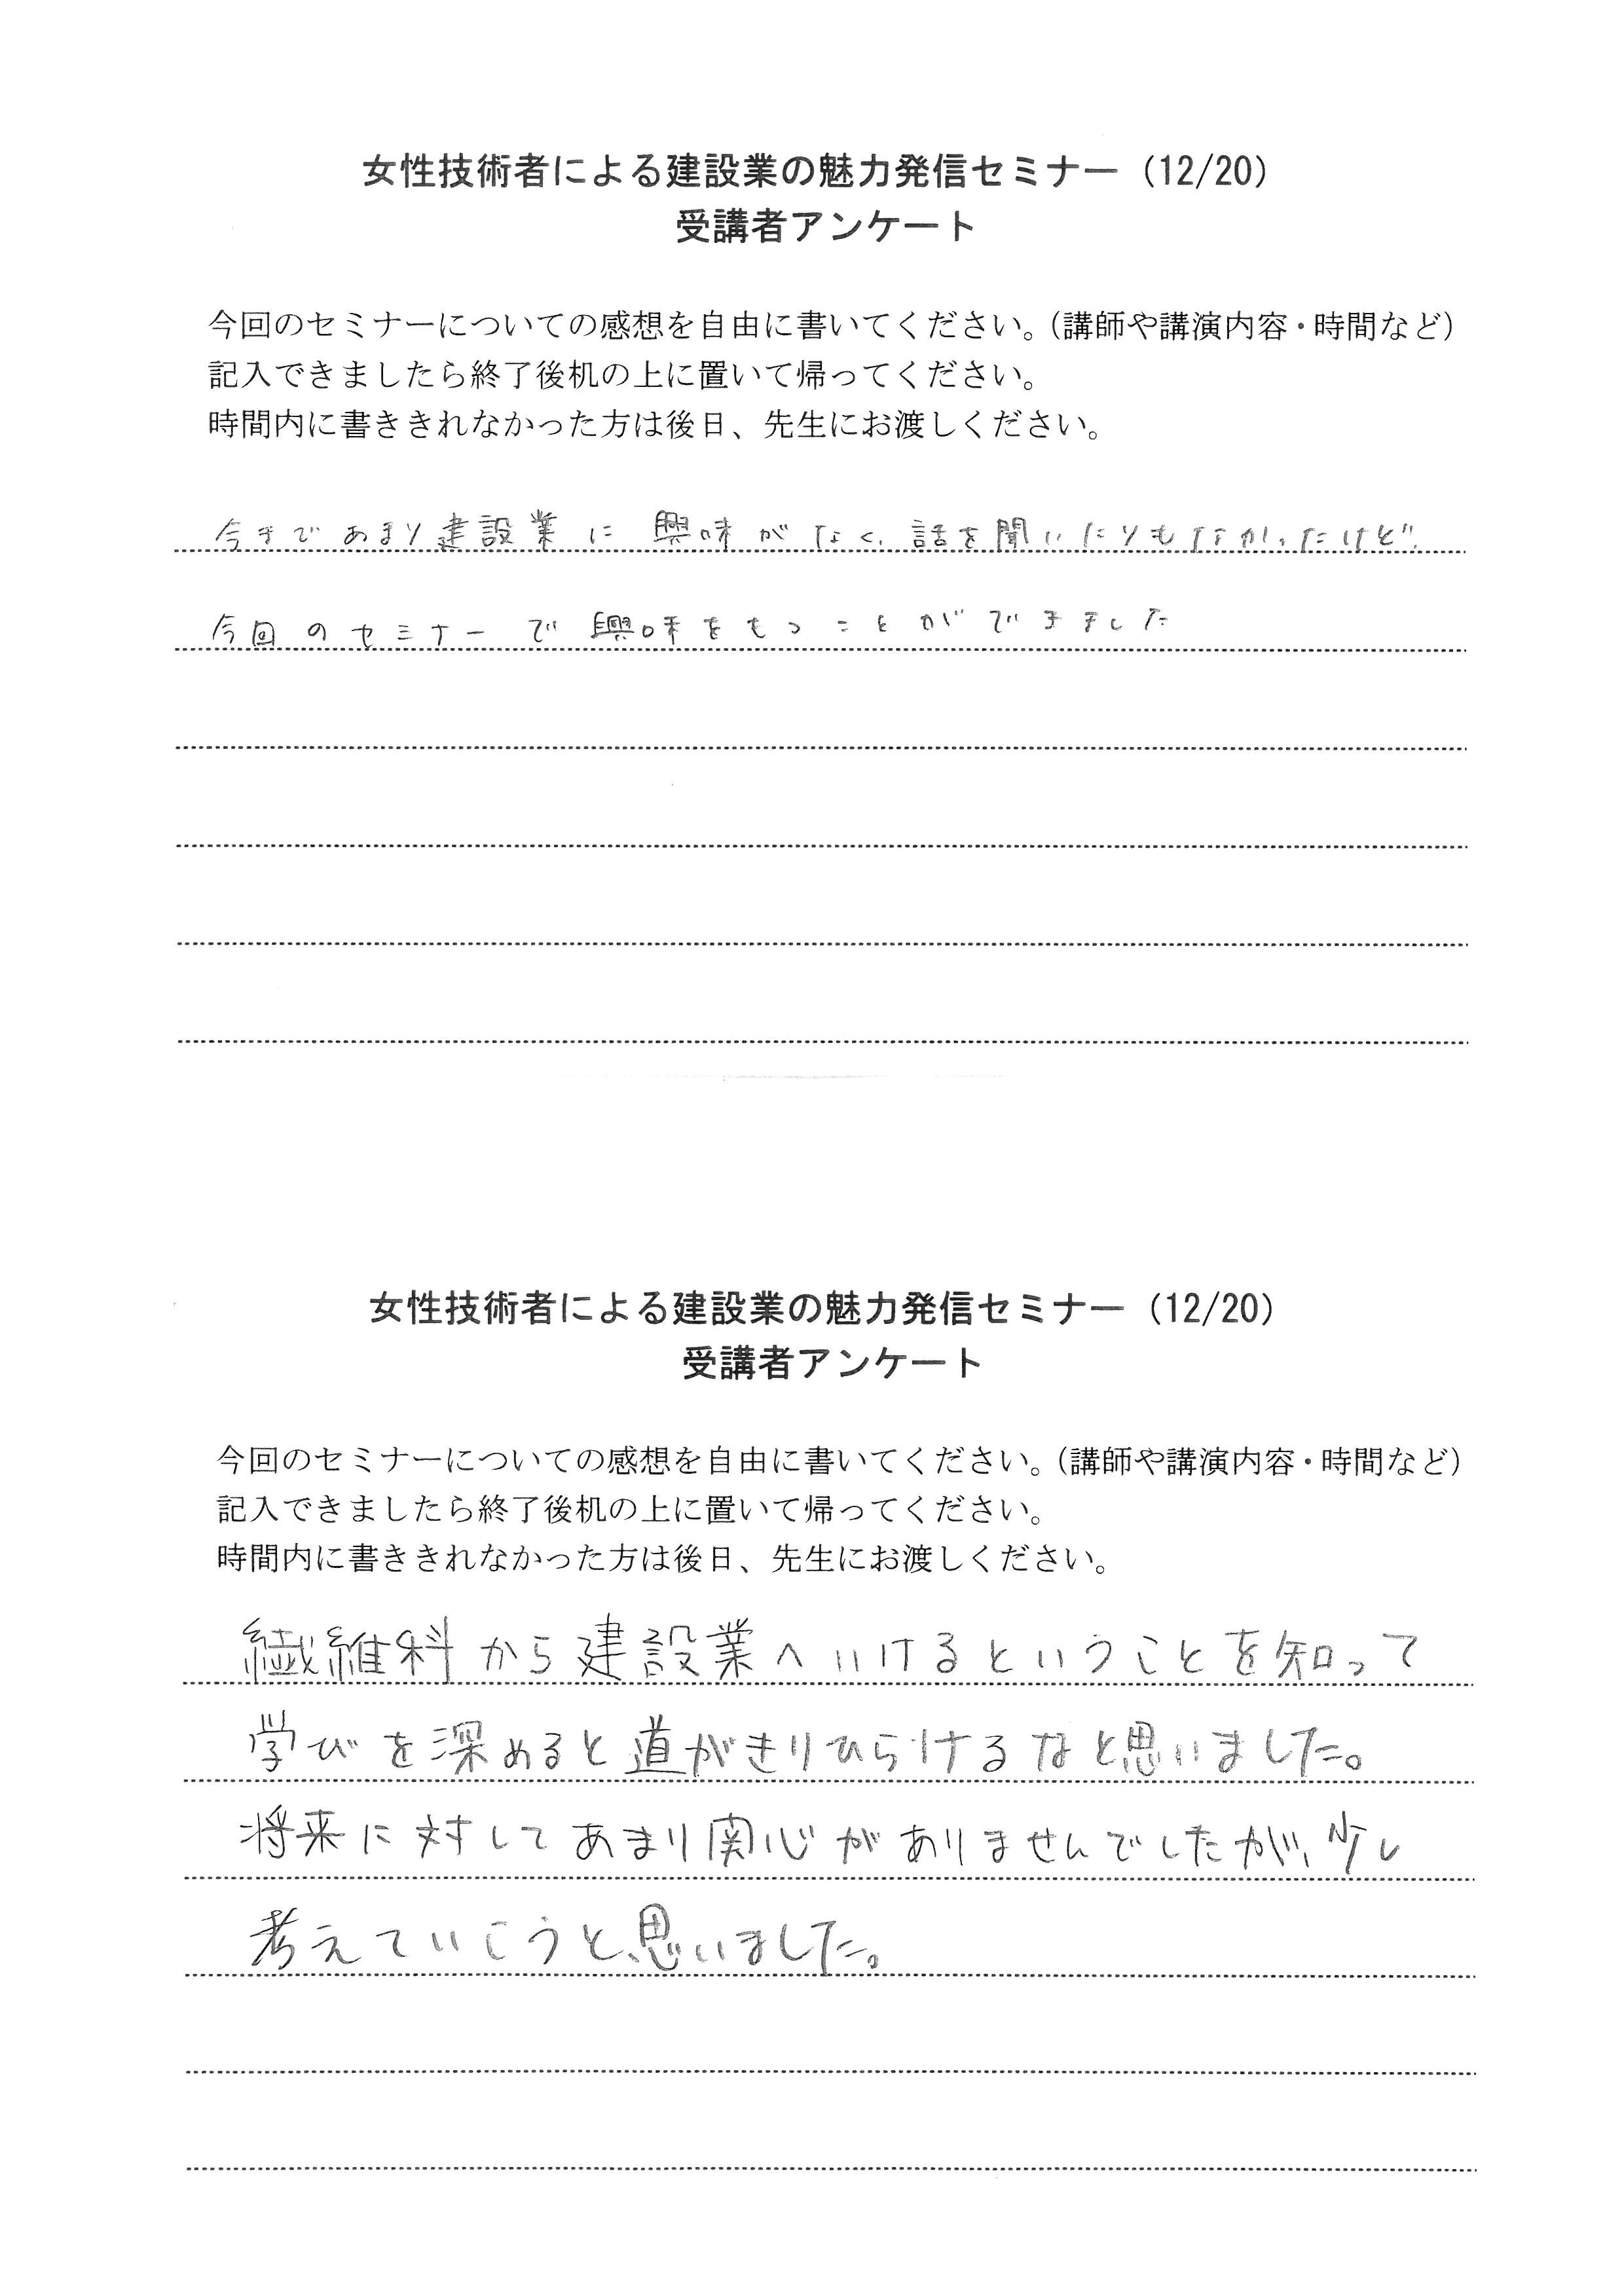 女性技術者による建設業の魅力発信セミナー（12/20）
受講者アンケート
今回のセミナーについての感想を自由に書いてください。（講師や講演内容・時間など）
記入できましたら終了後机の上に置いて帰ってください。
時間内に書ききれなかった方は後日、先生にお渡しください。
今まであまり建設業に興味がなく、話を聞いたりもなかったけど、
今回のセミナーで興味をもつことができました
女性技術者による建設業の魅力発信セミナー（12/20）
受講者アンケート
今回のセミナーについての感想を自由に書いてください。（講師や講演内容・時間など）
記入できましたら終了後机の上に置いて帰ってください。
時間内に書ききれなかった方は後日、先生にお渡しください。
繊維科から建設業へいけるということを知って
学びを深めると道がきりひらけるなと思いました。
将来に対してあまり関心がありませんでしたが、少し
考えていこうと思いました。